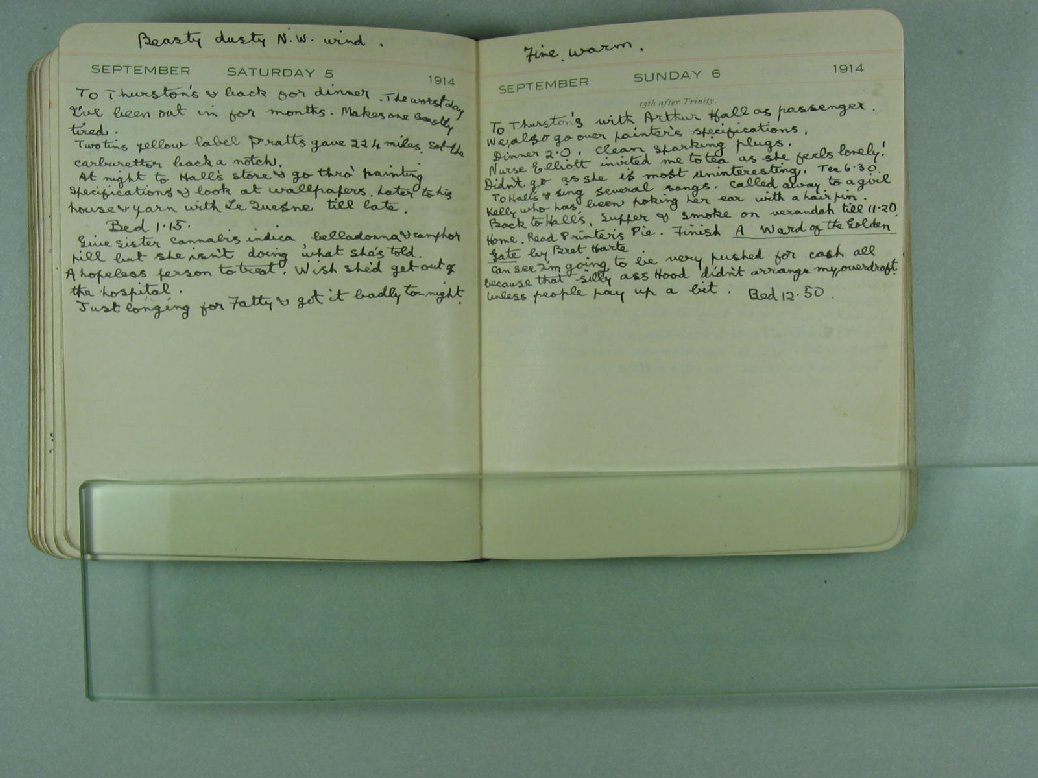 Beasty dusty N.W. wind.
SEPTEMBER SATURDAY 5 1914
To Thurston's & back for dinner. The worst day
I've been out in for months. Makes one beastly
tired.
Two tins yellow label Pratts gave 224 miles. Set the
carburetter back a notch.
At night to Hall's store & go thro' painting
specifications & look at wallpapers. Later to his
house & yarn with Le Quesne till late.
Bed 1.15.
Give Sister cannabis indica, belladonna & camphor
pill but she isn't doing what she's told.
A hopeless person to treat. Wish she'd get out of
the hospital.
Just longing for Fatty & got it badly to-night
Fine, warm.
SEPTEMBER SUNDAY 6 1914
13th after Trinity.
To Thurston's with Arthur Hall as passenger.
We also go over painter's specifications.
Dinner 2.0. Clean sparking plugs.
Nurse Elliott invited me to tea as she feels lonely!
Didn't go as she is most uninteresting. Tea 6.30.
To Hall's & sing several songs. Called away to a girl
Kelly who has been poking her ear with a hair pin.
Back to Hall's. Supper & smoke on verandah till 11.20.
Home. Read Printer's Pie. Finish A Ward of the Golden
Gate by Bret Harte
Can see I'm going to be very pushed for cash all
because that silly ass Hood didn't arrange my overdraft
unless people pay up a bit. Bed 12.50.